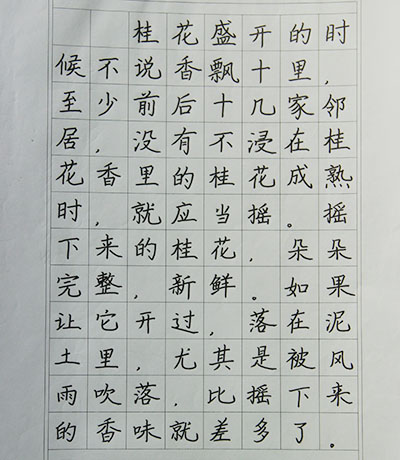 桂花盛开的时
候不说香飘十里，
至少前后十几家邻
居，没有不浸在桂
花香里的桂花成熟
时，就应当摇。摇
下来的桂花，朵朵
完整，新鲜。如果
让它开过，落在泥
土里，尤其是被风
雨吹落，比摇下来
的香味就差多了。